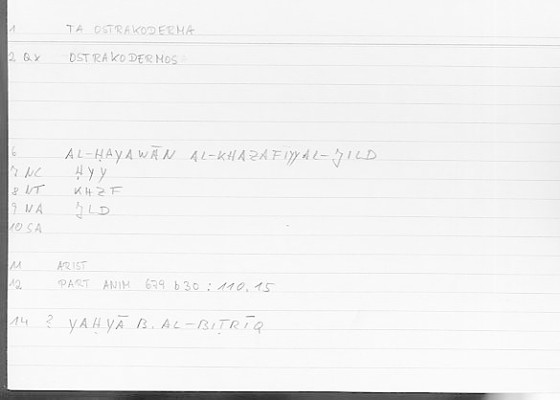 1 TA OSTRAKODERMA
2 QX OSTRAKODERMOS
6 AL-ḤAYAWĀN AL-KHAZAFIYYAL-ǦILD
7 NC ḤYY
8 NT KHZF
9 NA ǦLD
10 SA
11 ARIST
12 PART ANIM 679 b30 : 110.15
14 ? YAḤYĀ B. AL-BIṬRĪQ